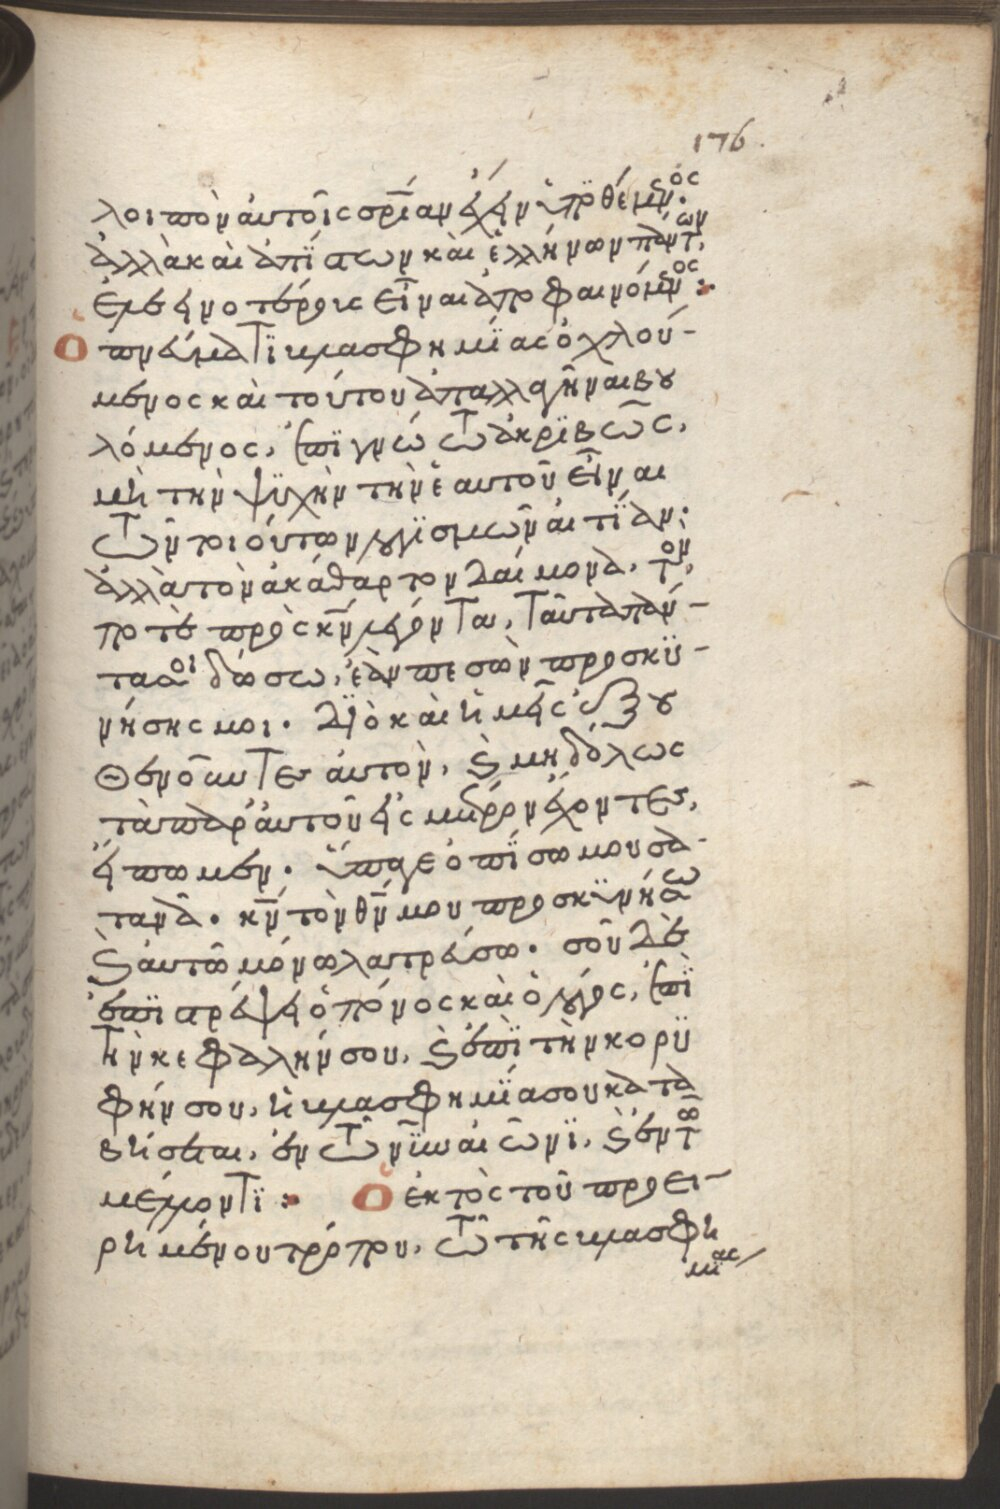 176
λοιπὸν αὐτοῖς στρίαν ἔχειν ὑποθέμενος.
ἀλλὰ καὶ ἀπίστων καὶ ἑλλήνων πάντων,
ἐλεεινοτέροις εἶναι ἀποφαινόμενος:
Ὁ πνεύματι βλασφημίας ὀχλού-
μενος καὶ τούτου ἀπαλλαγῆναι βου
λόμενος, ἐπιγνώτω ἀκριβῶς,
μὴ τὴν ψυχὴν τὴν ἑαυτοῦ εἶναι
τῶν τοιούτων λογισμῶν αἰτίαν.
ἀλλὰ τὸν ἀκάθαρτον δαίμονα. τὸν
ποτὲ πρὸς κν λέγοντα, ταῦτα πάν-
τα σοι δώσω, ἐὰν πεσὼν προσκυ-
νήσης μοι. διὸ καὶ ἡμεῖς ἐξου
θενοῦντες αὐτὸν, καὶ μηδόλως
τὰ παρ' αὐτοῦ εἰς μέτρον ἔχοντες,
εἴπωμεν. ὕπαγε ὀπίσω μου σα-
τανᾶ. κν τὸν θν μου προσκυνήσω
καὶ αὐτῶ μόνω λατρεύσω. σοῦ δὲ
ἐπιστρέψει ὁ πόνος καὶ ὁ λόγος, ἐπὶ
τὴν κεφαλήν σου, καὶ ἐπὶ τὴν κορυ
φήν σου, ἡ βλασφημία σου κατα
βήσεται, ἐν τῶ νῦν αἰῶνι, καὶ ἐν τῶ
μέλλοντι: Ὁ ἐκτὸς τοῦ προει-
ρημένου τρόπου, τῶ τῆς βλασφη
μίας